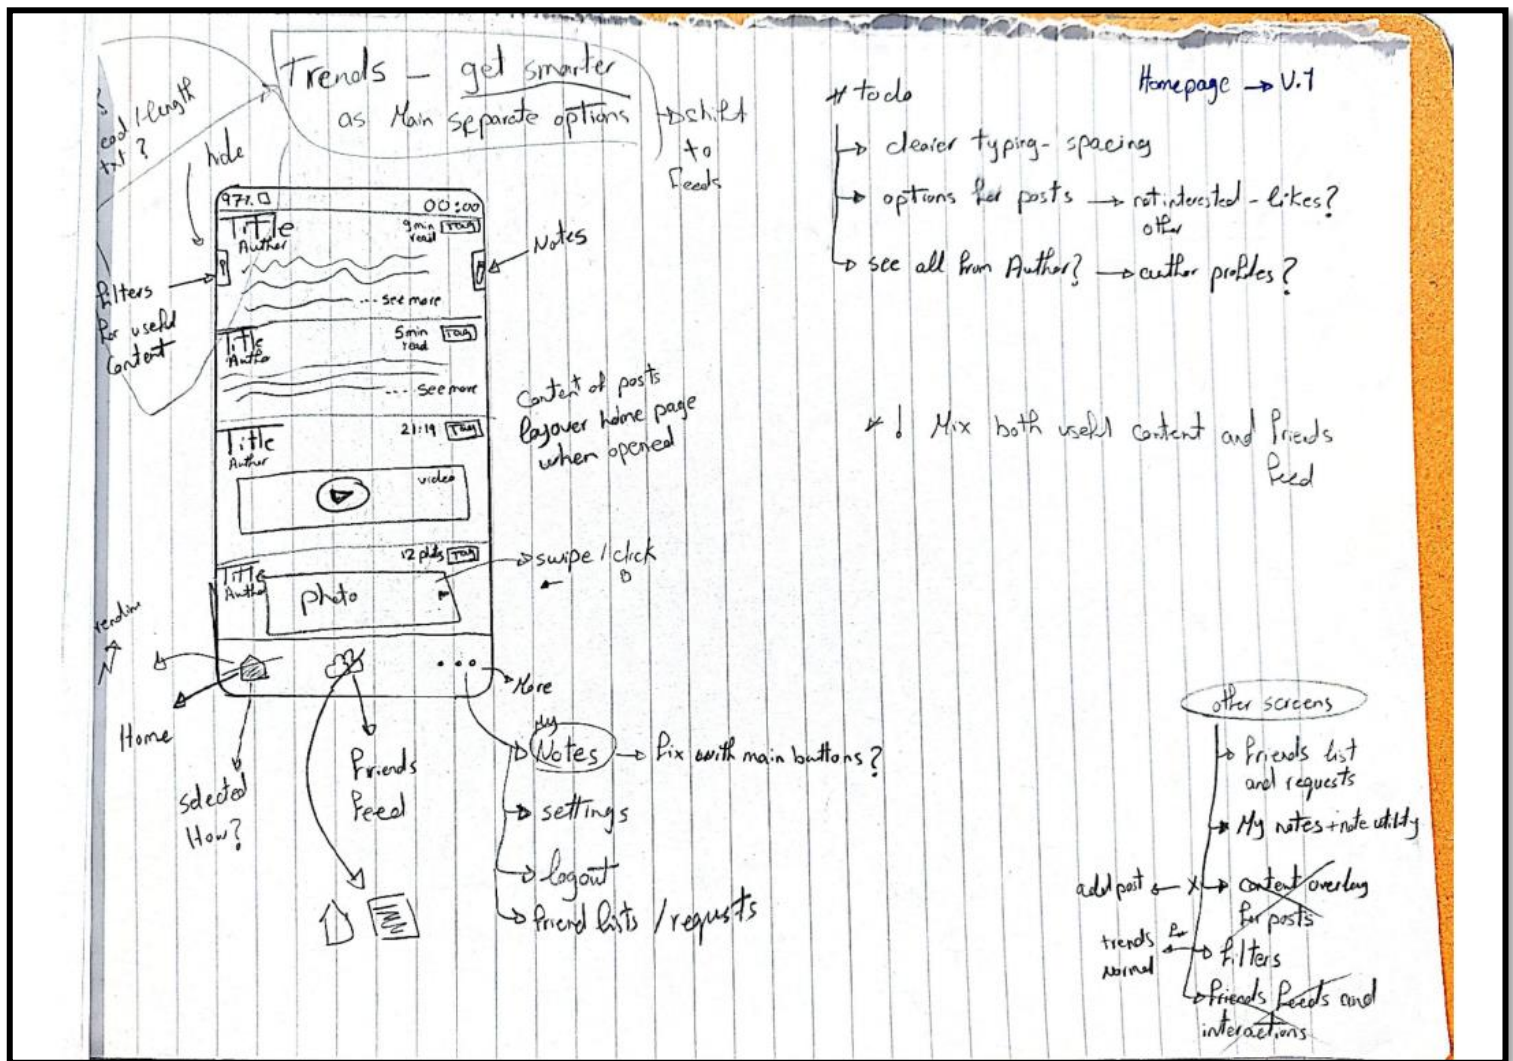 Homepage → V.1
Trends - get smarter
as Main separate options
shift
to
Feeds
length
txt?
hide
filters
for useful
content
97%
00:00
Title
Author
9min
read
Tag
... see more
Notes
Title
Author
5min
read
Tag
... see more
Title
Author
21:19
Tag
video
Title
Author
Tag
photo
swipe / click
Content of posts
layover home page
when opened
Home
selected
How?
Friends
Feed
More
My
Notes → fix with main buttons?
settings
logout
friend lists / requests
# todo
clearer typing - spacing
options for posts → not interested - likes?
other
see all from Author? → author profiles?
! Mix both useful content and friends
feed
other screens
friends list
and requests
My notes + note utility
add post ← X → content overlay
for posts
trends
normal
for
filters
friends feeds and
interactions